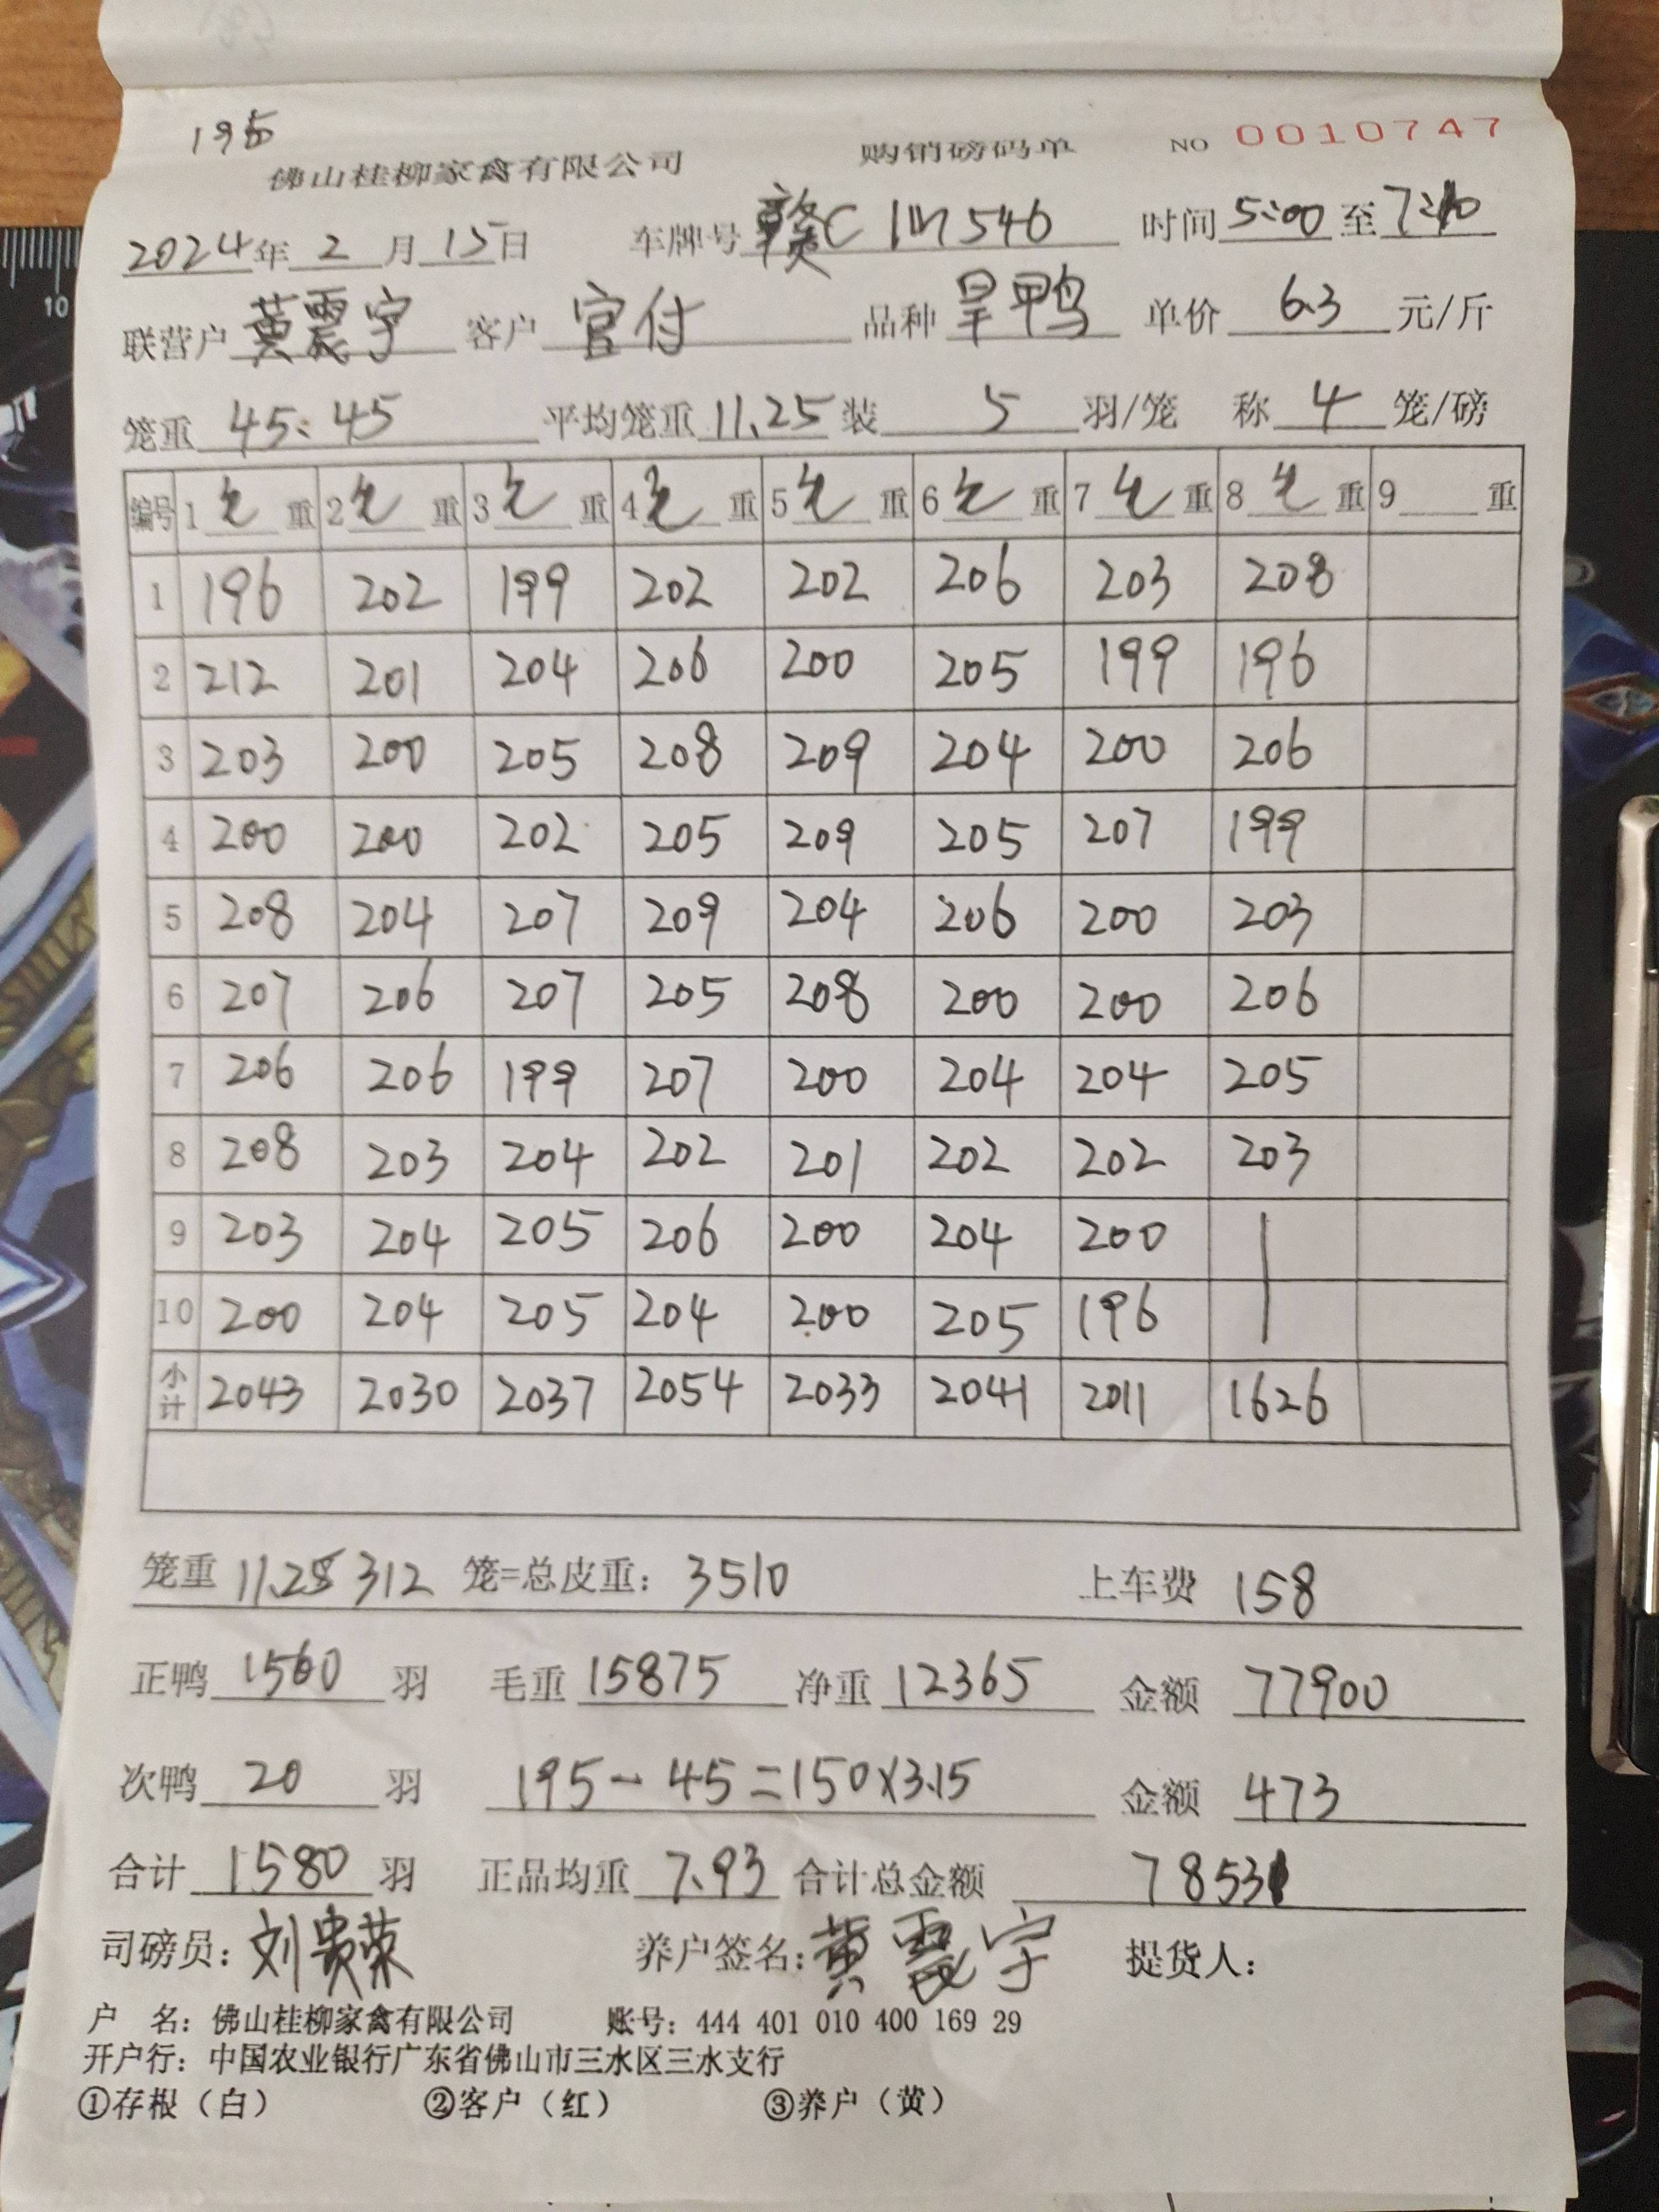 195
佛山桂柳家禽有限公司 购销磅码单 NO 0010747
2024年2月15日 车牌号赣C1M546 时间5:00至7:10
联营户黄震宇 客户官付 品种旱鸭 单价6.3元/斤
笼重45:45 平均笼重11.25装5羽/笼 称4笼/磅
编号 1毛重 2毛重 3毛重 4毛重 5毛重 6毛重 7毛重 8毛重 9重
1 196 202 199 202 202 206 203 208
2 212 201 204 206 200 205 199 196
3 203 200 205 208 209 204 200 206
4 200 200 202 205 209 205 207 199
5 208 204 207 209 204 206 200 203
6 207 206 207 205 208 200 200 206
7 206 206 199 207 200 204 204 205
8 208 203 204 202 201 202 202 203
9 203 204 205 206 200 204 200
10 200 204 205 204 200 205 196
小计 2043 2030 2037 2054 2033 2041 2011 1626
笼重 11.25 312 笼=总皮重: 3510 上车费 158
正鸭1560羽 毛重15875 净重12365 金额 77900
次鸭20羽 195-45=150×3.15 金额 473
合计1580羽 正品均重7.93 合计总金额 78531
司磅员:刘贵荣 养户签名:黄震宇 提货人:
户 名: 佛山桂柳家禽有限公司 账号: 444 401 010 400 169 29
开户行: 中国农业银行广东省佛山市三水区三水支行
①存根(白) ②客户(红) ③养户(黄)